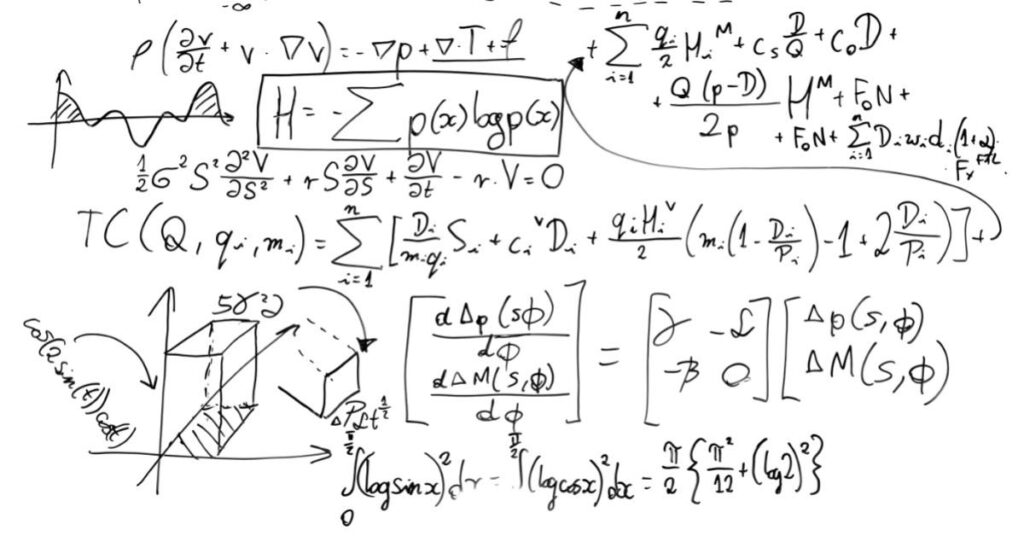 -∞
ρ(∂v/∂t + v · ∇v) = -∇p + ∇·T + f
+ ∑_{i=1}^{n} q_i/2 H_i^M + c_s D/Q + c_0 D +
+ Q(p-D)/2p H^M + F_0 N +
+ F_0 N + ∑_{i=1}^{n} D_i w_i d_i (1+α)
H = -∑ p(x) log p(x)
1/2 σ² S² ∂²V/∂S² + r S ∂V/∂S + ∂V/∂t - r · V = 0
TC(Q, q_i, m_i) = ∑_{i=1}^{n} [D_i/(m_i q_i) S_i + c_i^v D_i + q_i H_i^v/2 (m_i (1 - D_i/P_i) - 1 + 2 D_i/P_i)] +
[d Δp(sϕ)/dϕ
d Δ M(s,ϕ)/dϕ] = [γ -L
-β 0] [Δp(s,ϕ)
ΔM(s,ϕ)
∫_0^{π/2} (log sin x)² dx = ∫^{π/2} (log cos x)² dx = π/2 {π²/12 + (log 2)²}